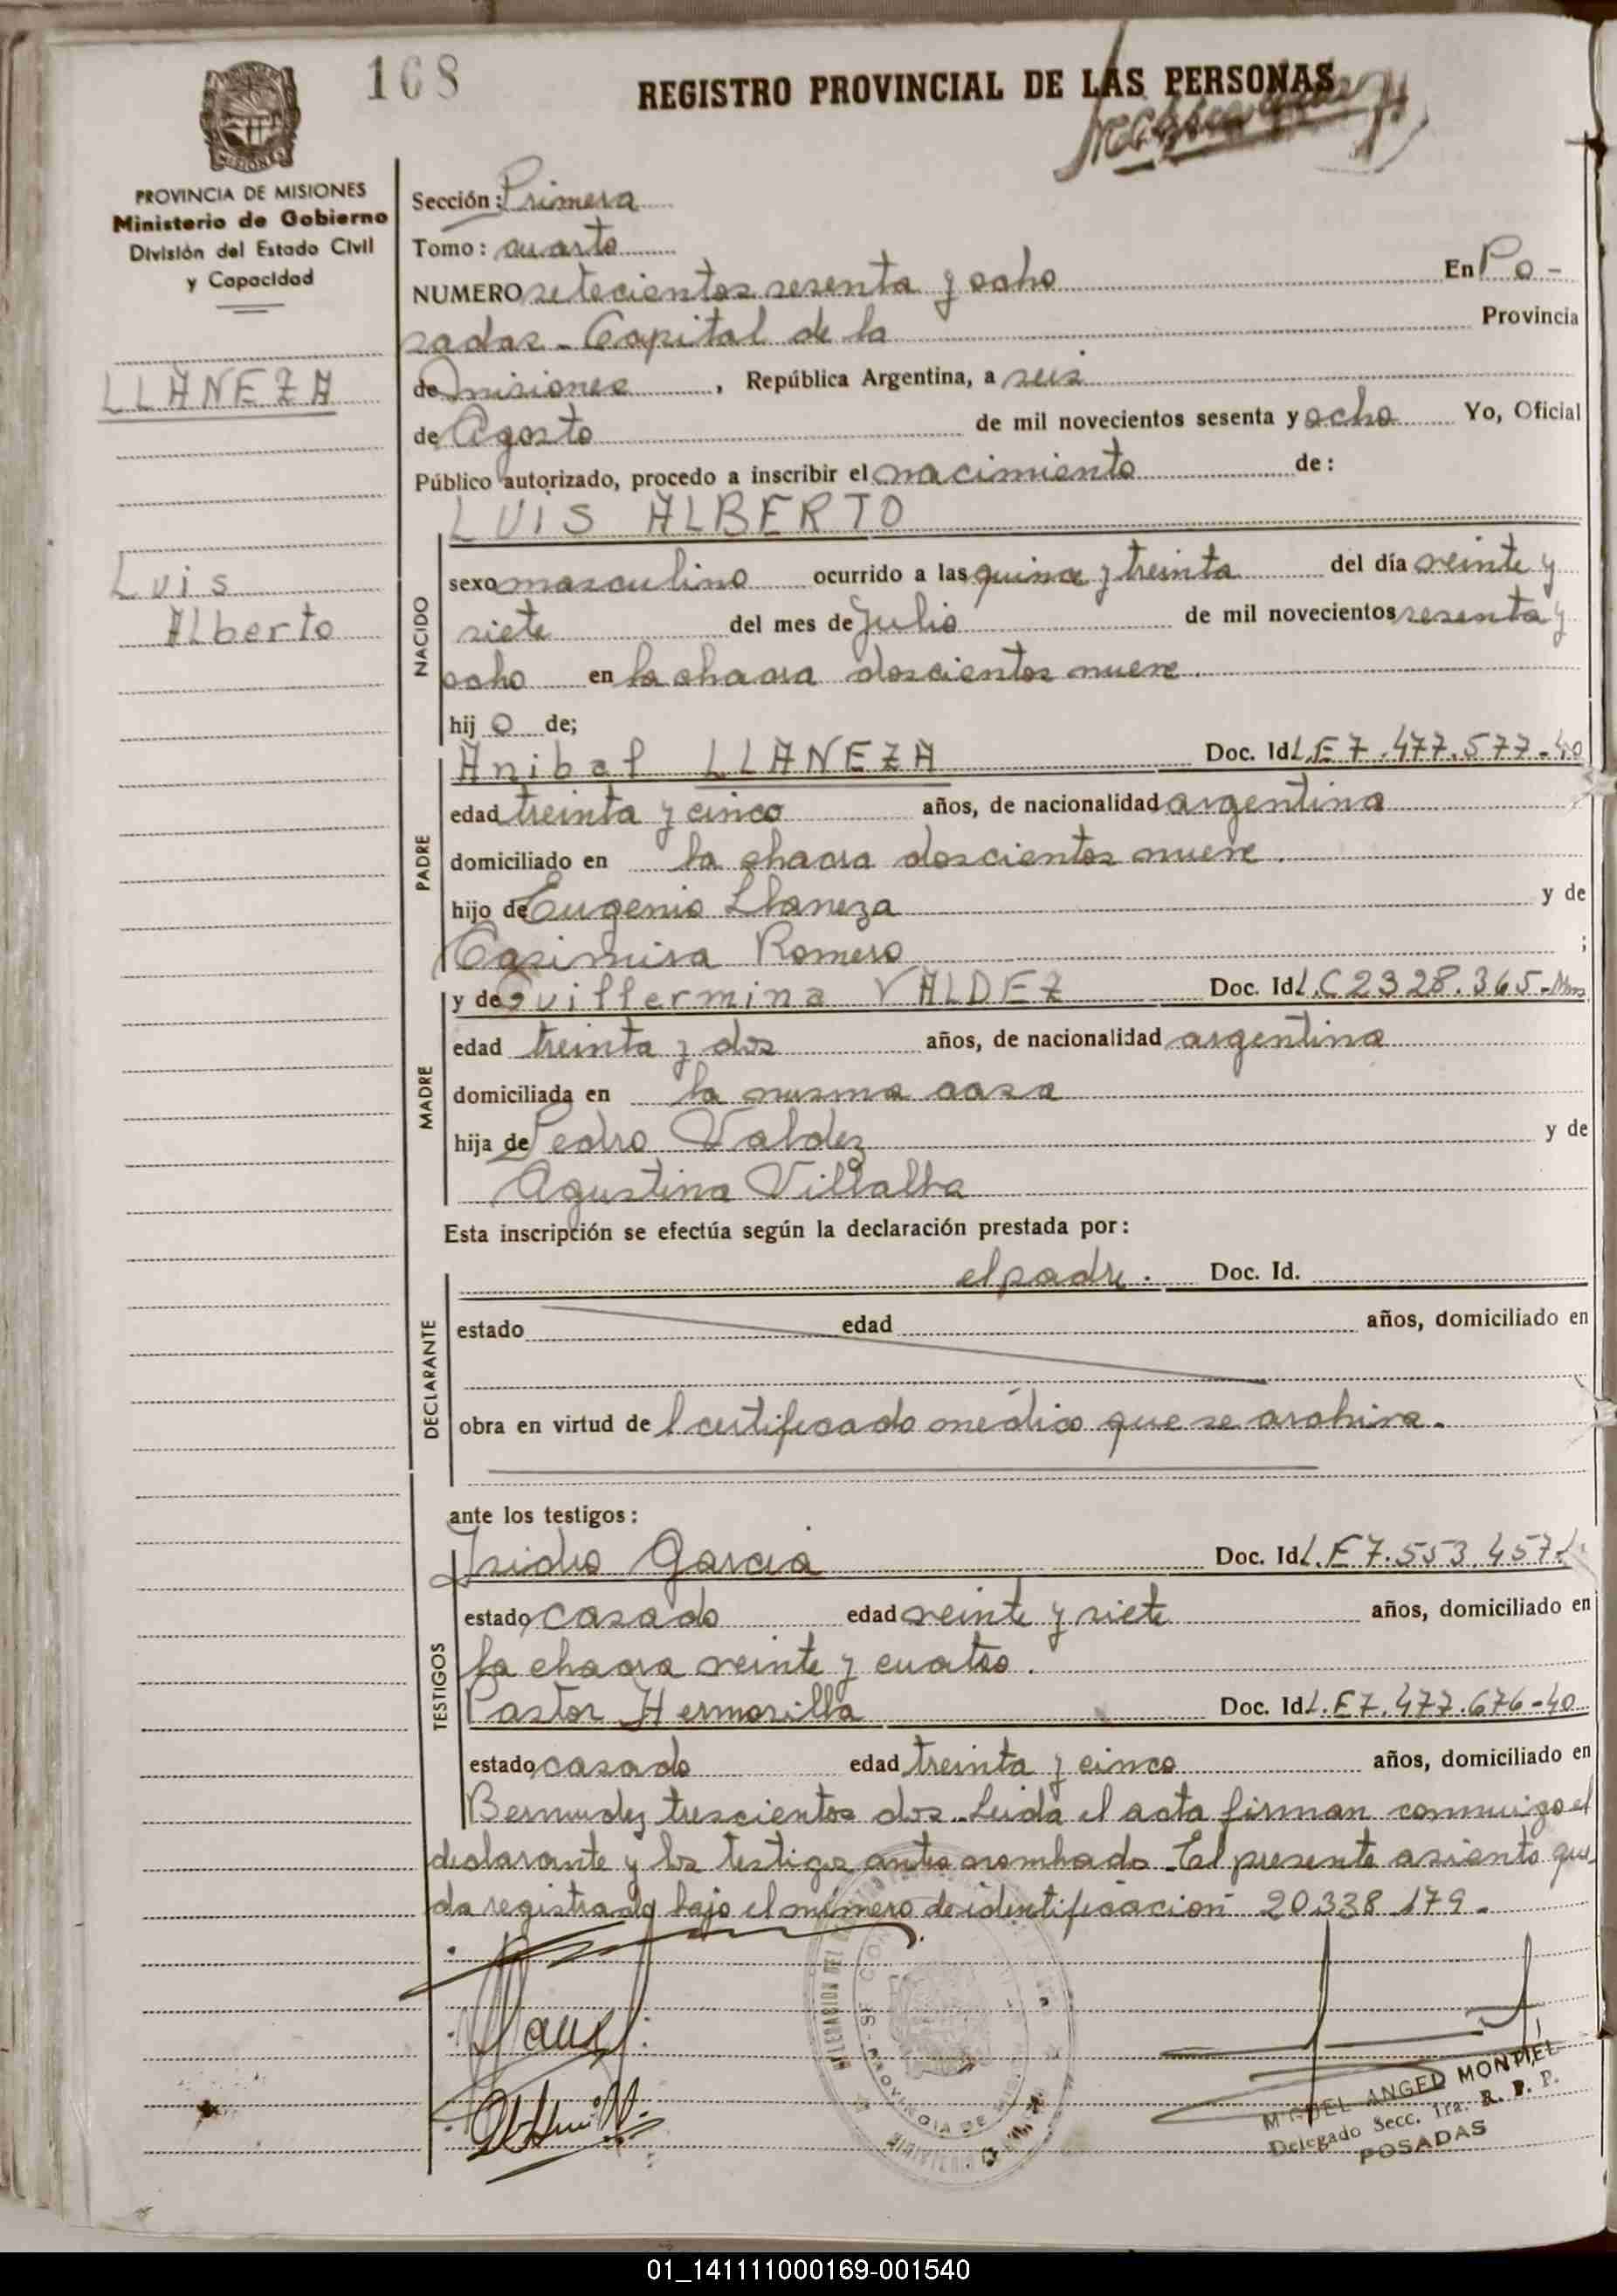 168
REGISTRO PROVINCIAL DE LAS PERSONAS
MISIONES
PROVINCIA DE MISIONES
Ministerio de Gobierno
División del Estado Civil
y Capacidad
LLANEZA
Luis
Alberto
Sección: Primera
Tomo: cuarto
NUMERO setecientos sesenta y ocho En Po-
sadas - Capital de la Provincia
de Misiones, República Argentina, a seis
de Agosto de mil novecientos sesenta y ocho Yo, Oficial
Público autorizado, procedo a inscribir el nacimiento de:
LUIS ALBERTO
NACIDO
sexo masculino ocurrido a las quince y treinta del día veinte y
siete del mes de Julio de mil novecientos sesenta y
ocho en la chacra doscientos nueve.
hijo de;
PADRE
Anibal LLANEZA Doc. Id L.E 7.477.577-40
edad treinta y cinco años, de nacionalidad argentina
domiciliado en la chacra doscientos nueve.
hijo de Eugenio Llaneza y de
Casimira Romero ;
MADRE
y de Guillermina VALDEZ Doc. Id L.C 2328.365-
edad treinta y dos años, de nacionalidad argentina
domiciliada en la misma casa
hija de Pedro Valdez y de
Agustina Villalba
Esta inscripción se efectúa según la declaración prestada por:
DECLARANTE
el padre. Doc. Id.
estado edad años, domiciliado en
obra en virtud de l certificado médico que se archiva.
ante los testigos:
TESTIGOS
Isidro Garcia Doc. Id L.E 7.553.457
estado casado edad veinte y siete años, domiciliado en
la chacra veinte y cuatro.
Pastor Hermosilla Doc. Id L.E 7.477.676-40
estado casado edad treinta y cinco años, domiciliado en
Bermudez trescientos dos. Leida el acta firman conmigo el
declarante y los testigos antes nombrado. El presente asiento que
da registrado bajo el número de identificación 20.338.179.
PROVINCIA DE
MIGUEL ANGEL MONTIEL
Delegado Secc. 1ra. R. P. P.
POSADAS
01_141111000169-001540